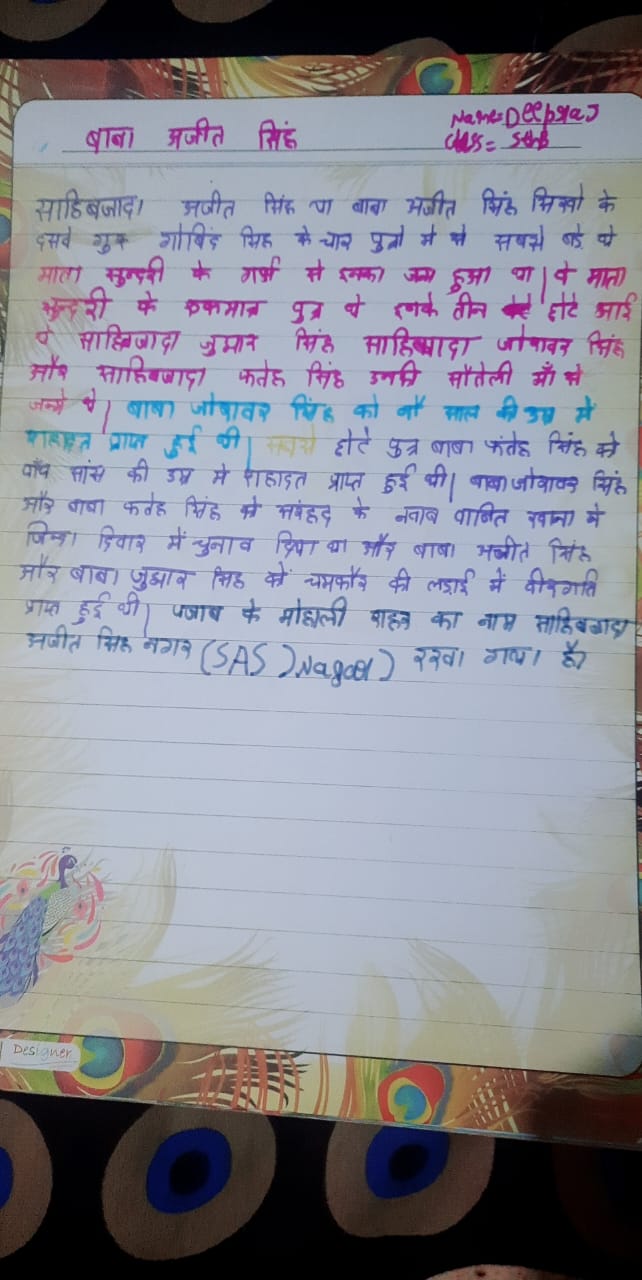 Name=Deepraj
बाबा अजीत सिंह
class= 5th
साहिबजादा अजीत सिंह या बाबा अजीत सिंह सिक्खो के
दसवे गुरू गोबिंद सिंह के चार पुत्रो मे से सबसे बडे थे
माता सुन्दरी के गर्भ से इनका जन्म हुआ था| वे माता
सुन्दरी के एकमात्र पुत्र थे इनके तीन छोटे भाई
थे साहिबजादा जुझार सिंह साहिबजादा जोरावर सिंह
और साहिबजादा फतेह सिंह उनकी सौतेली माँ से
जन्मे थे| बाबा जोरावर सिंह को नौ साल की उम्र मे
शहादत प्राप्त हुई थी| सबसे छोटे पुत्र बाबा फतेह सिंह को
पाँच सांस की उम्र मे शहादत प्राप्त हुई थी| बाबा जोरावर सिंह
और बाबा फतेह सिंह को सरहद के नवाब वाजित खान ने
जिन्दा दिवार में चुनाव दिया था और बाबा अजीत सिंह
और बाबा जुझार सिंह को चमकौर की लडाई में वीरगति
प्राप्त हुई थी| पंजाब के मोहाली शहर का नाम साहिबजादा
अजीत सिंह नगर (SAS) Nagar) रखा गया है।
Designer